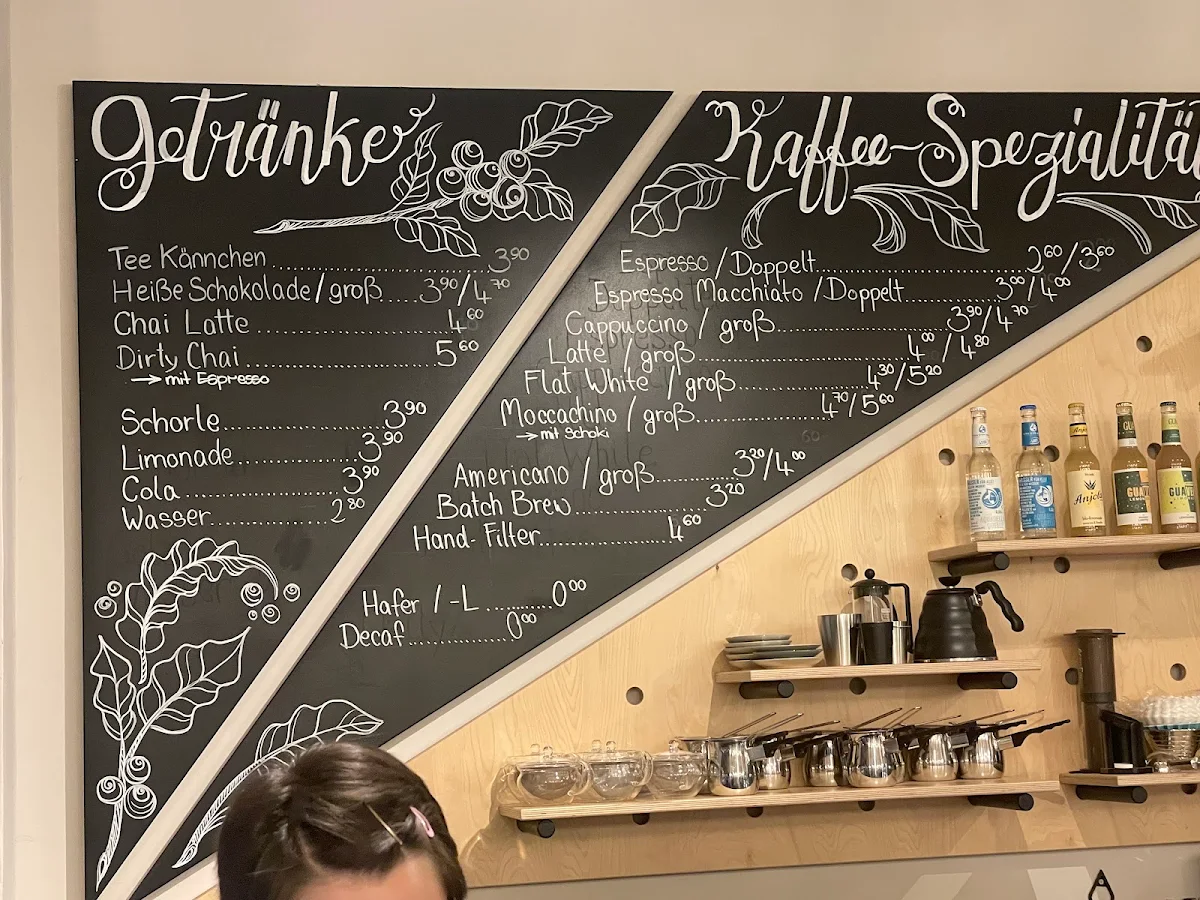 Getränke
Tee Kännchen 3⁹⁰
Heiße Schokolade/groß 3⁹⁰/4⁷⁰
Chai Latte 4⁶⁰
Dirty Chai 5⁶⁰
→ mit Espresso
Schorle 3⁹⁰
Limonade 3⁹⁰
Cola 3⁹⁰
Wasser 2⁸⁰
Kaffee-Spezialitä
Espresso/Doppelt 2⁶⁰/3⁶⁰
Espresso Macchiato/Doppelt 3⁰⁰/4⁰⁰
Cappuccino/groß 3⁹⁰/4⁷⁰
Latte/groß 4⁰⁰/4⁸⁰
Flat White/groß 4³⁰/5²⁰
Moccachino/groß 4⁷⁰/5⁶⁰
→ mit Schoki
Americano/groß 3²⁰/4⁰⁰
Batch Brew 3²⁰
Hand-Filter 4⁶⁰
Hafer/-L 0⁰⁰
Decaf 0⁰⁰
Anjola